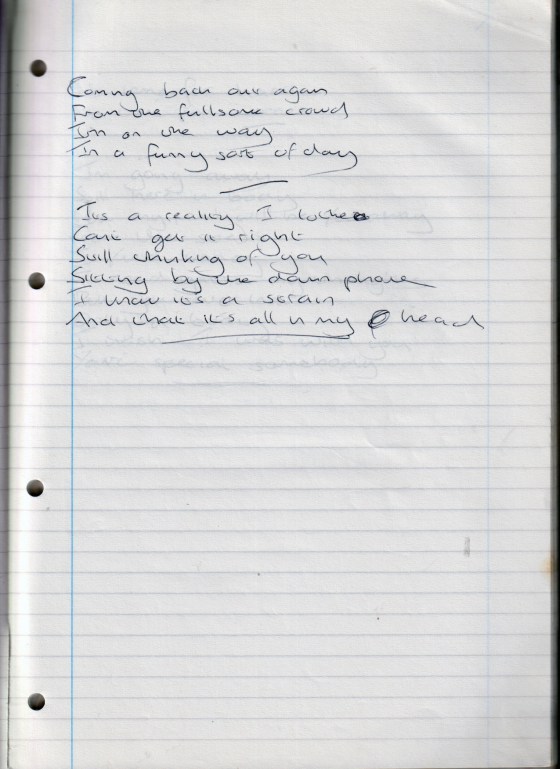 Coming back out again
From the fullsome crowd
I'm on the way
In a funny sort of day
It's a reality I
Can't get it right
Still thinking of you
Sitting by the damn phone
I know it's a strain
And that it's all in my head